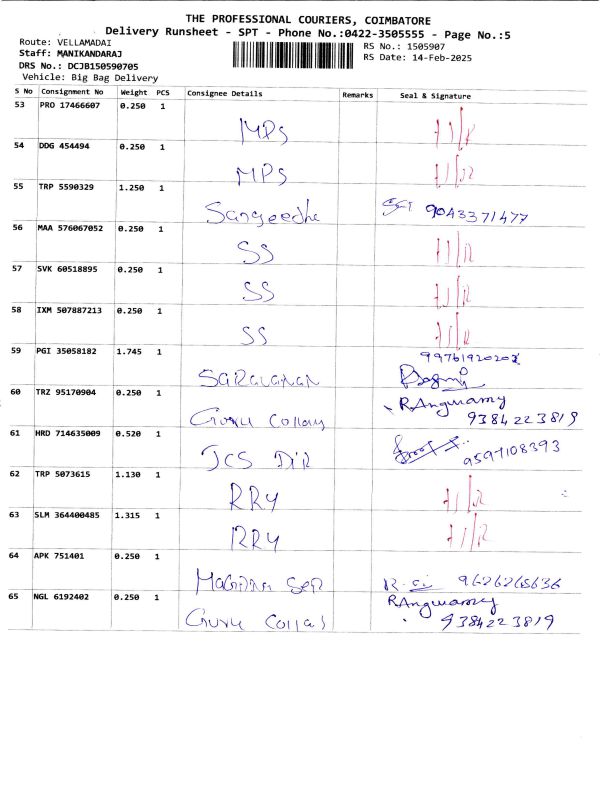 THE PROFESSIONAL COURIERS, COIMBATORE
Delivery Runsheet - SPT - Phone No.:0422-3505555 - Page No.:5
Route: VELLAMADAI
RS No.: 1505907
Staff: MANIKANDARAJ
RS Date: 14-Feb-2025
DRS No.: DCJB150590705
Vehicle: Big Bag Delivery
S No Consignment No Weight PCS Consignee Details Remarks Seal & Signature
53 PRO 17466607 0.250 1
MPS
54 DDG 454494 0.250 1
MPS
55 TRP 5590329 1.250 1
Sangeetha 9043371477
56 MAA 576067052 0.250 1
SS
57 SVK 60518895 0.250 1
SS
58 IXM 507887213 0.250 1
SS
59 PGI 35058182 1.745 1
Saravanan
60 TRZ 95170904 0.250 1 RAngwamy
Guru 9384223819
61 HRD 714635009 0.520 1
JCS DIR 9597108393
62 TRP 5073615 1.130 1
RRY
63 SLM 364400485 1.315 1
RRY
64 APK 751401 0.250 1
9626265636
65 NGL 6192402 0.250 1 RAngwamy
Guru 9384223819